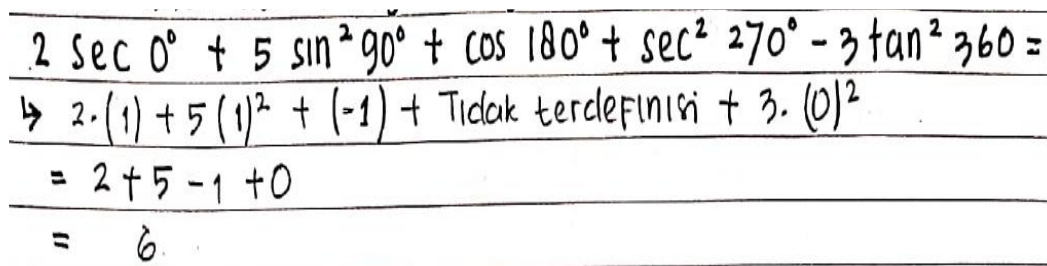 2 sec 0° + 5 sin² 90° + cos 180° + sec² 270° - 3 tan² 360 =
↳ 2.(1) + 5(1)² + (-1) + Tidak terdefinisi + 3. (0)²
= 2 + 5 - 1 + 0
= 6.